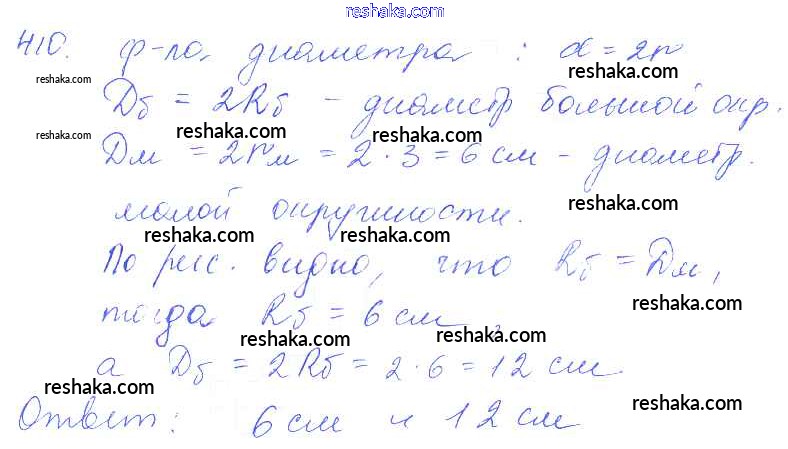 reshaka.com
410. ф-ла диаметра : d = 2r
reshaka.com reshaka.com
Dб = 2Rб - диаметр большой окр.
reshaka.com reshaka.com reshaka.com
Dм = 2rм = 2 · 3 = 6 см - диаметр.
reshaka.com
малой окружности.
reshaka.com reshaka.com
По рис. видно, что Rб = Dм,
reshaka.com
тогда Rб = 6 см,
reshaka.com reshaka.com
а Dб = 2Rб = 2 · 6 = 12 см
reshaka.com reshaka.com
Ответ: 6 см и 12 см